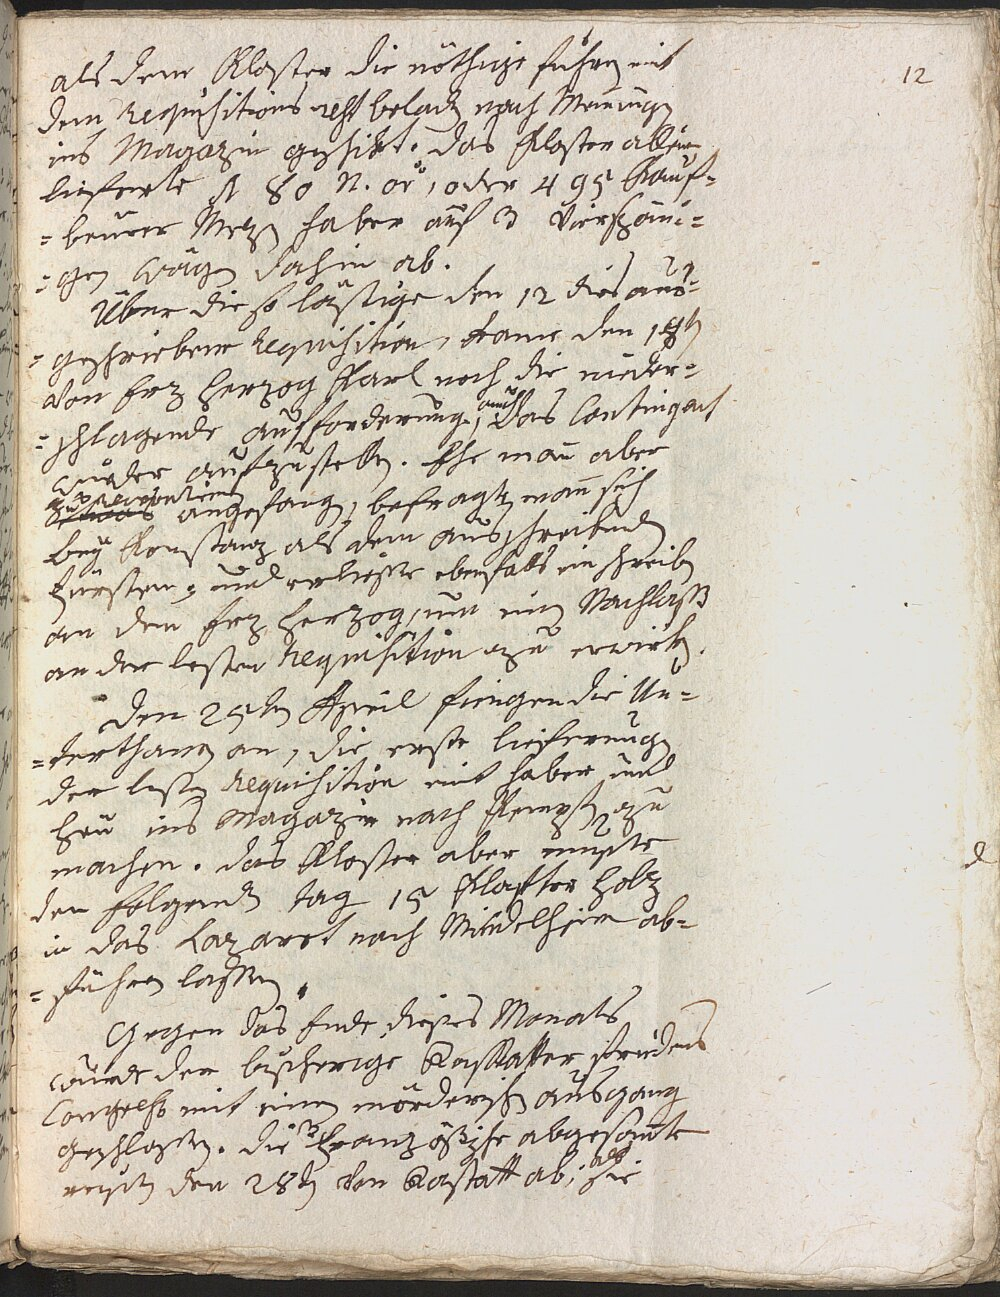 12
als dem Kloster die nöthige fuhrn mit
dem Requisitions rest beladen nach Mening
ins Magazin geschikt. das Kloster allein
lieferte 80 N. oe, oder 495 Kauf=
=beurer Mezen haber auf 3 vierspäni=
=gen Wägen dahin ab.
Über diese so lästige den 12 dies aus=
=geschriebene Requisition, kame den 19ten
von Erz Herzog Karl noch die nieder=
=schlagende aufforderung, auch das Contingent
wieder aufzustellen. Ehe man aber
zu recroutieren angefangen, befragte mann sich
bey Konstanz als dem ausschreibenden
Fürsten, und erliesse ebenfalls ein schreiben
an den Erz Herzog, um ein Nachlaß
an der lesten Requisition zu erwirken.
Den 25ten April fiengen die Un=
=terthanen an, die erste lieferung
der lesten Requisition mit haber und
heu ins Magazin nach Kempten zu
machen. das Kloster aber musste
den folgenden tag 15 Klafter holz
in das Lazaret nach Mindelheim ab=
=führen lassen.
Gegen das Ende dieses Monats
wurde der bisherige Rastatter friedens
Congreß mit einem mörderischen ausgang
geschlossen. die 3 französische abgesandte
reisten den 28ten von Rastatt ab; als sie